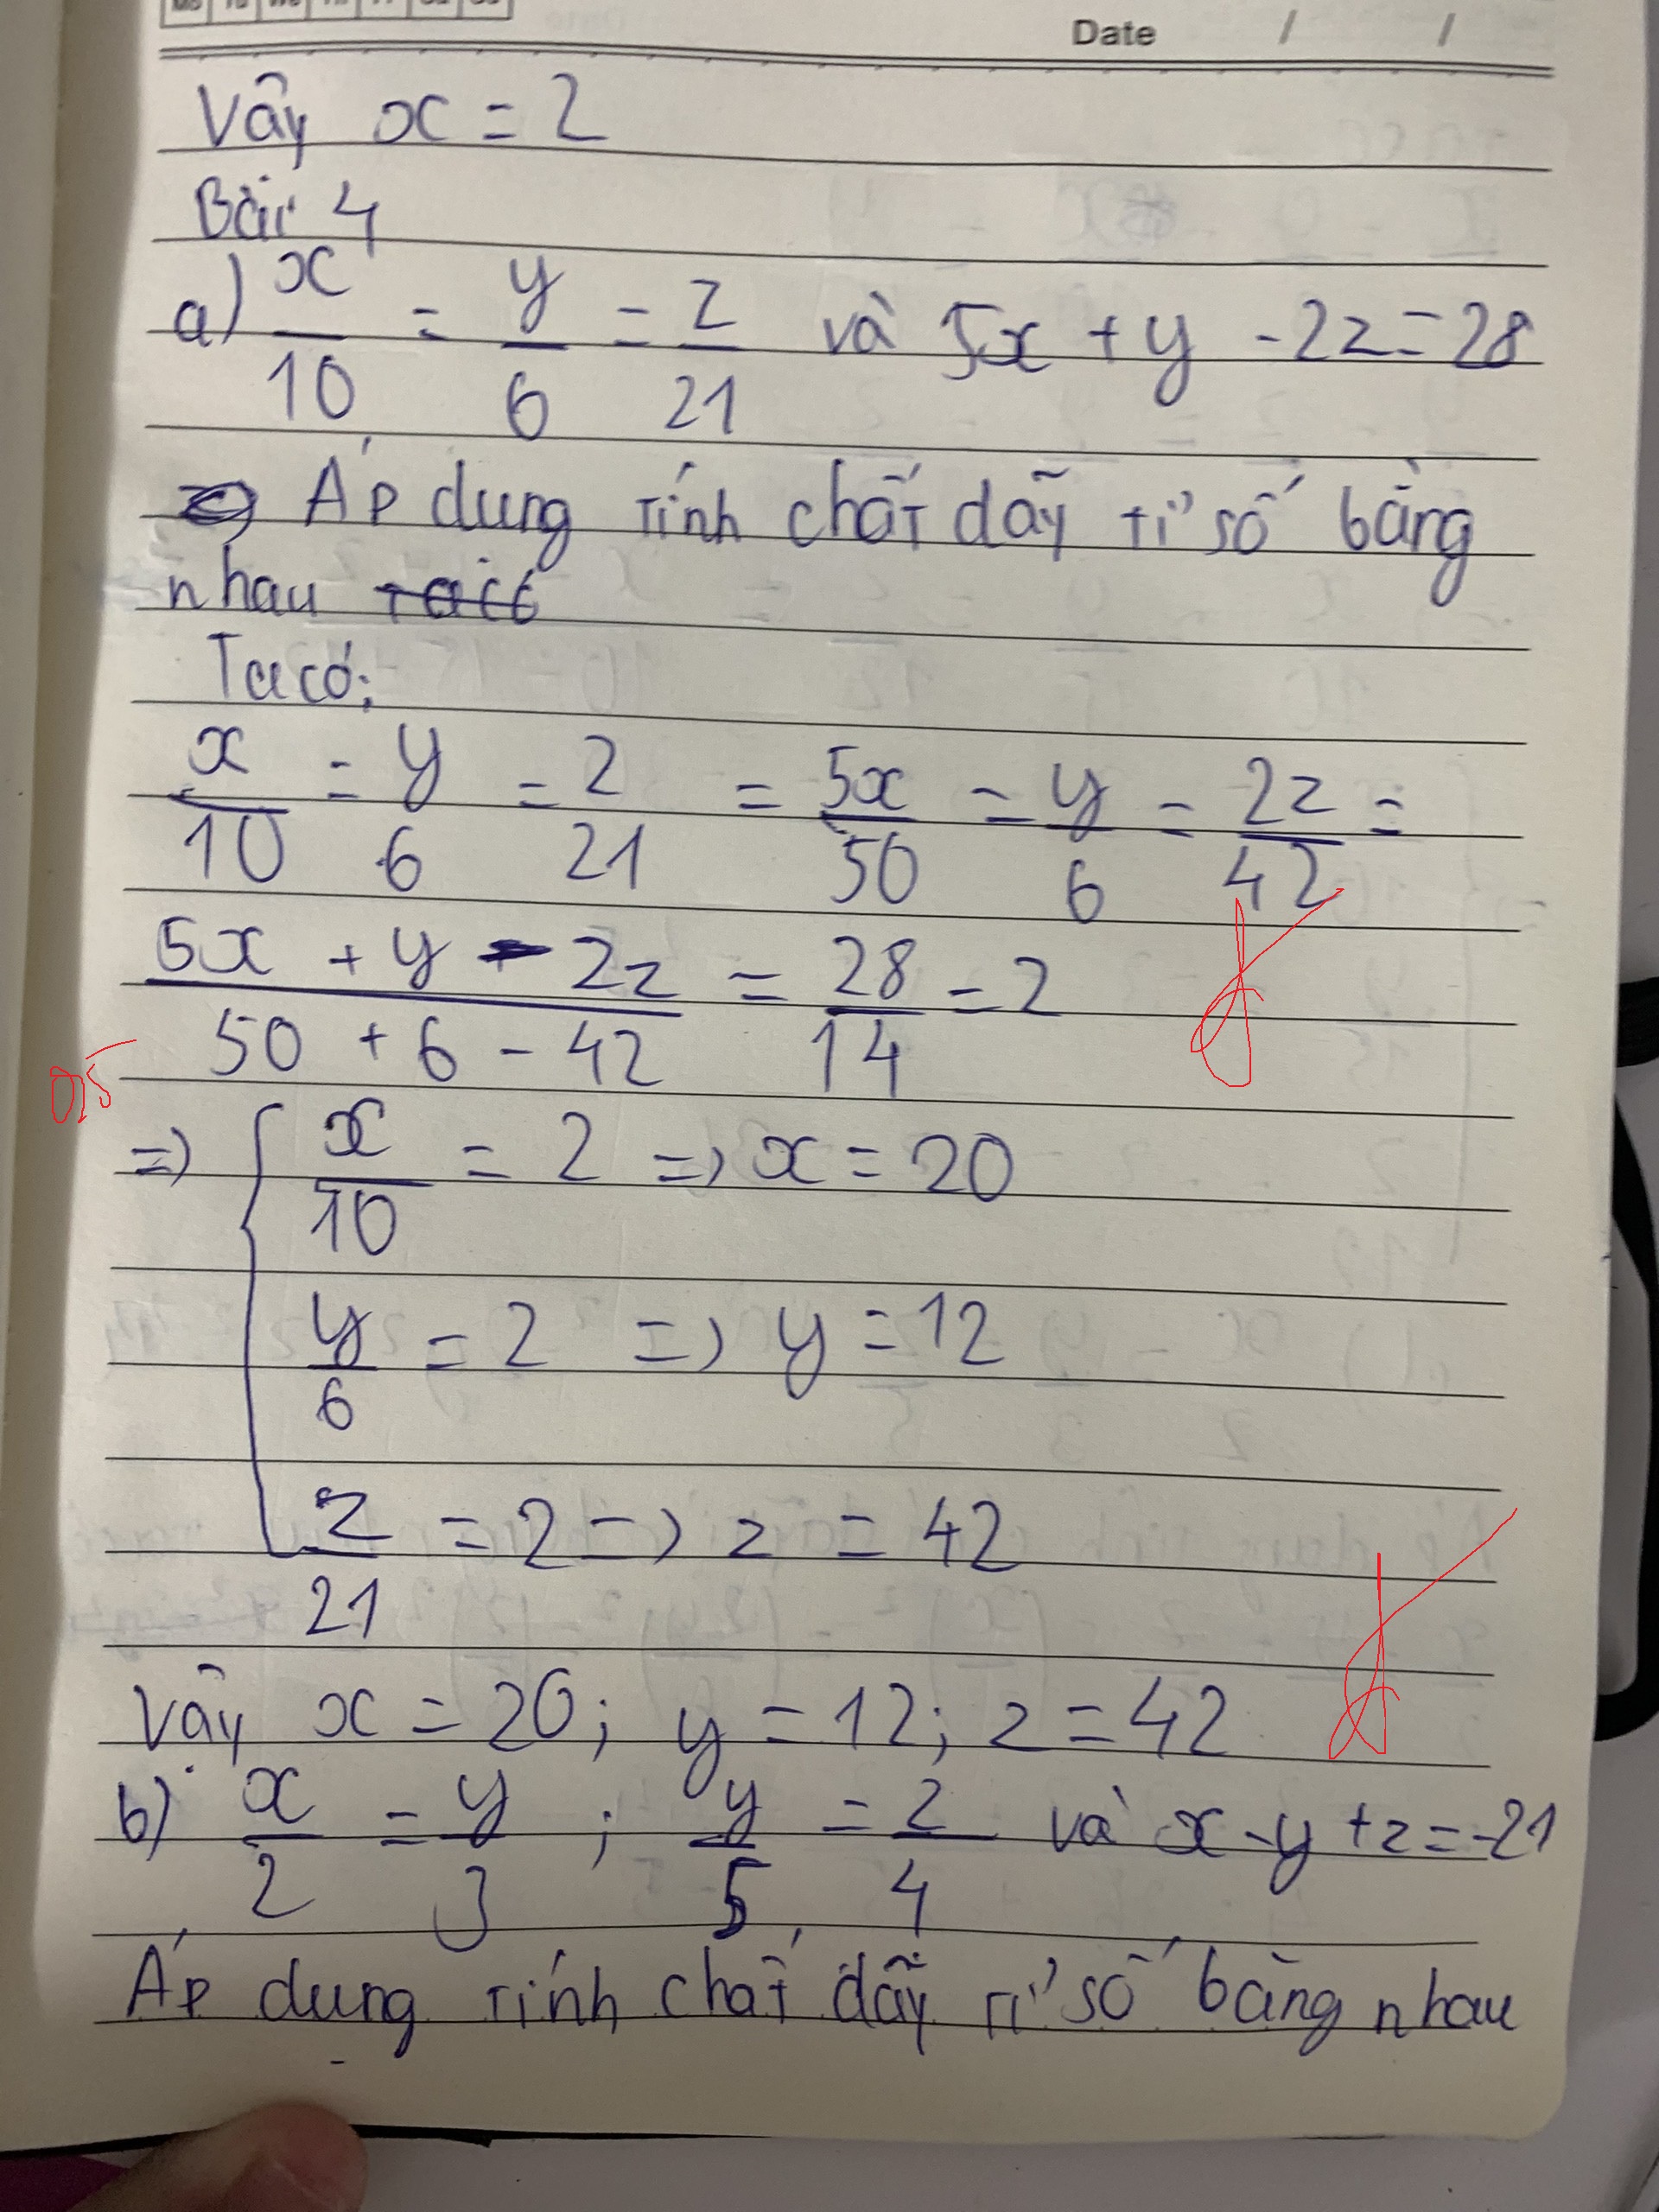 Date / /
Vậy x = 2
Bài 4
a) x/10 = y/6 = z/21 và 5x + y - 2z = 28
Áp dụng tính chất dãy tỉ số bằng
nhau
Ta có:
x/10 = y/6 = z/21 = 5x/50 = y/6 = 2z/42 =
(5x + y - 2z)/(50 + 6 - 42) = 28/14 = 2
0,5
=> { x/10 = 2 => x = 20
y/6 = 2 => y = 12
z/21 = 2 => z = 42
Vậy x = 20; y = 12; z = 42
b) x/2 = y/3 ; y/5 = z/4 và x - y + z = -21
Áp dụng tính chất dãy tỉ số bằng nhau